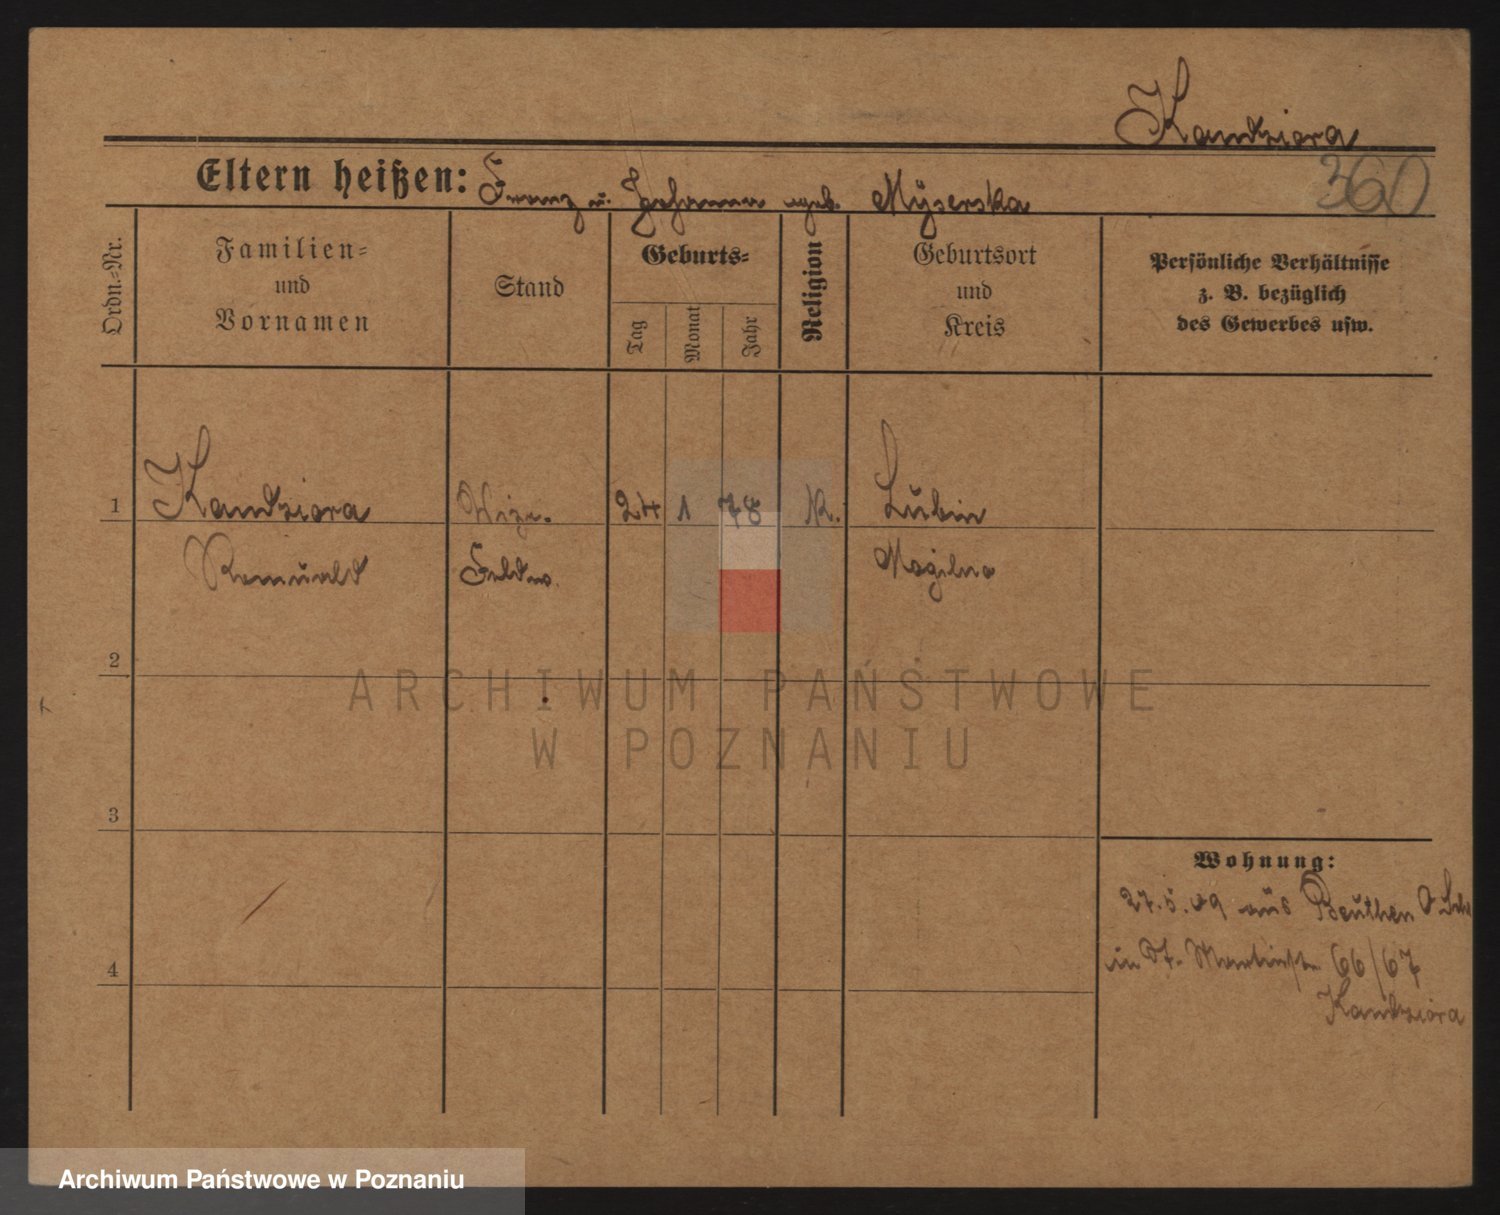 Kandziora
360
Eltern heißen: Franz u. Johanna geb. Mÿserska
Ordn.=Nr.
Familien=
und
Vornamen
Stand
Geburts=
Tag
Monat
Jahr
Religion
Geburtsort
und
Kreis
Persönliche Verhältnisse
z. B. bezüglich
des Gewerbes usw.
1
Kandziora
Vize.
24 1 78
K.
Lubin
Romuald
Feldw.
Mogilno
2
ARCHIWUM PAŃSTWOWE
W POZNANIU
3
Wohnung:
27.5.09 aus Beuthen O Schl
4
in St. Martinstr 66/67
Kandziora
Archiwum Państwowe w Poznaniu